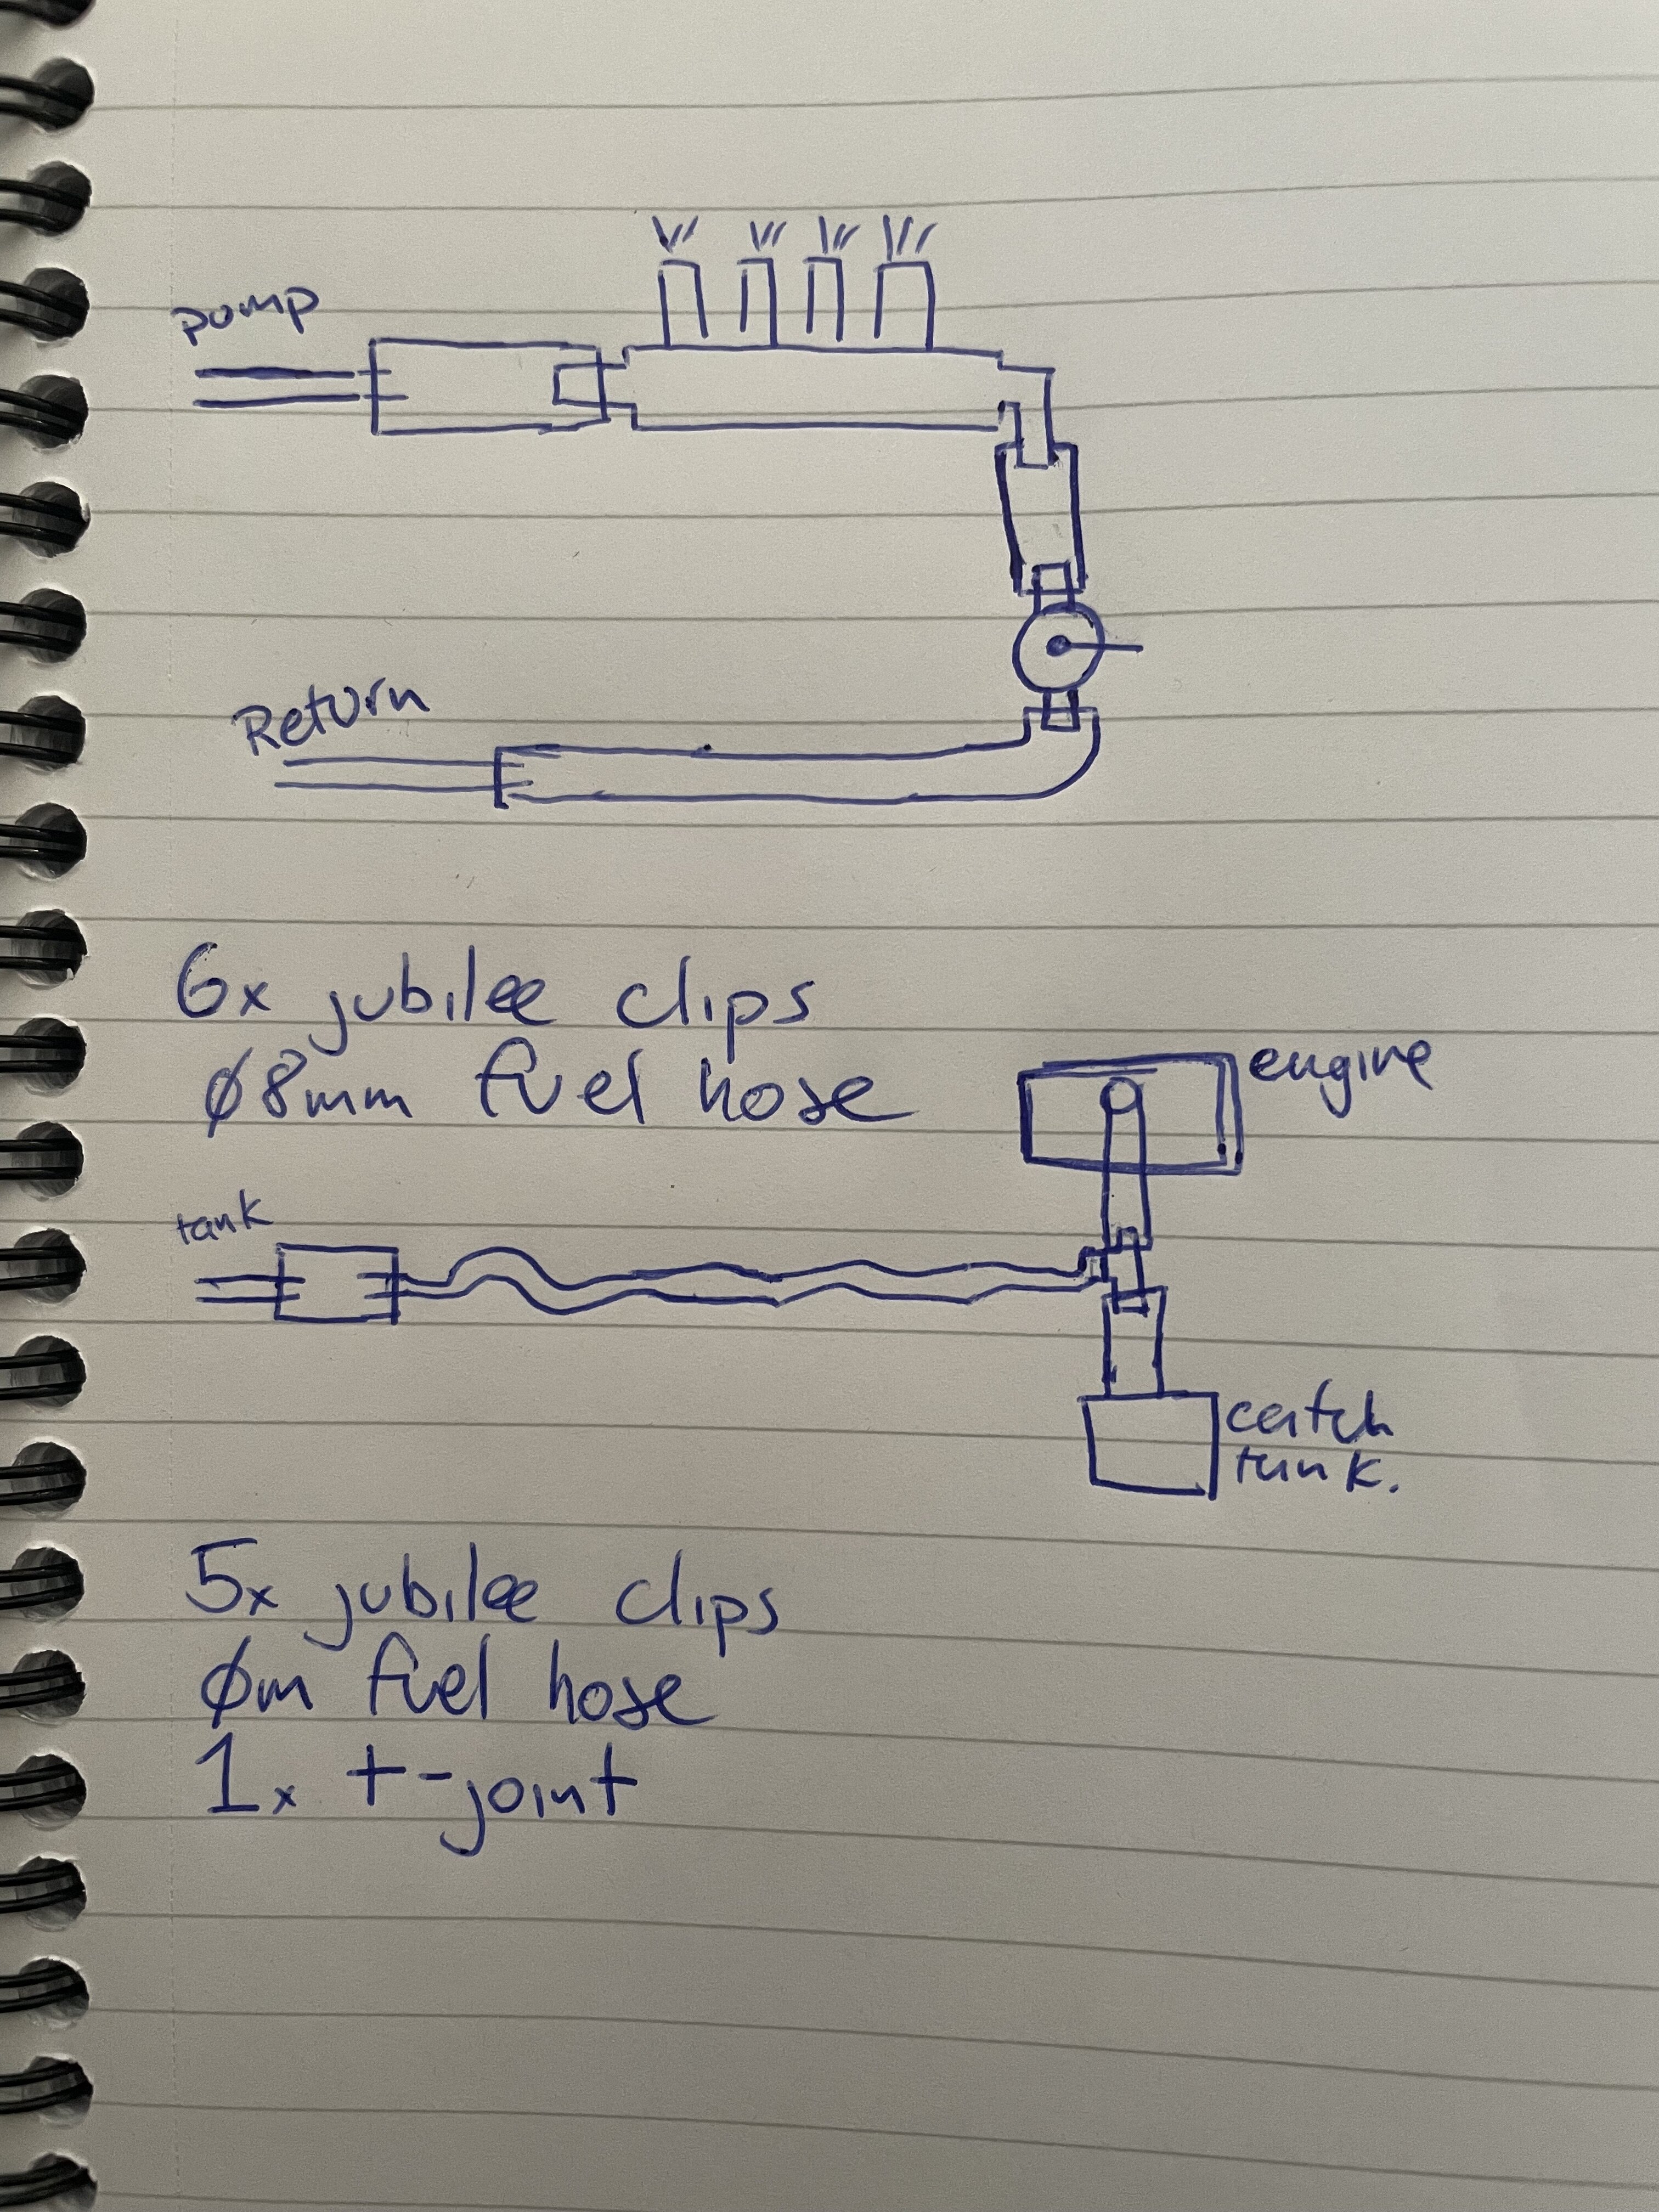 pump
Return
6x jubilee clips
Ø8mm fuel hose
engine
tank
catch
tank.
5x jubilee clips
Øm fuel hose
1x t-joint